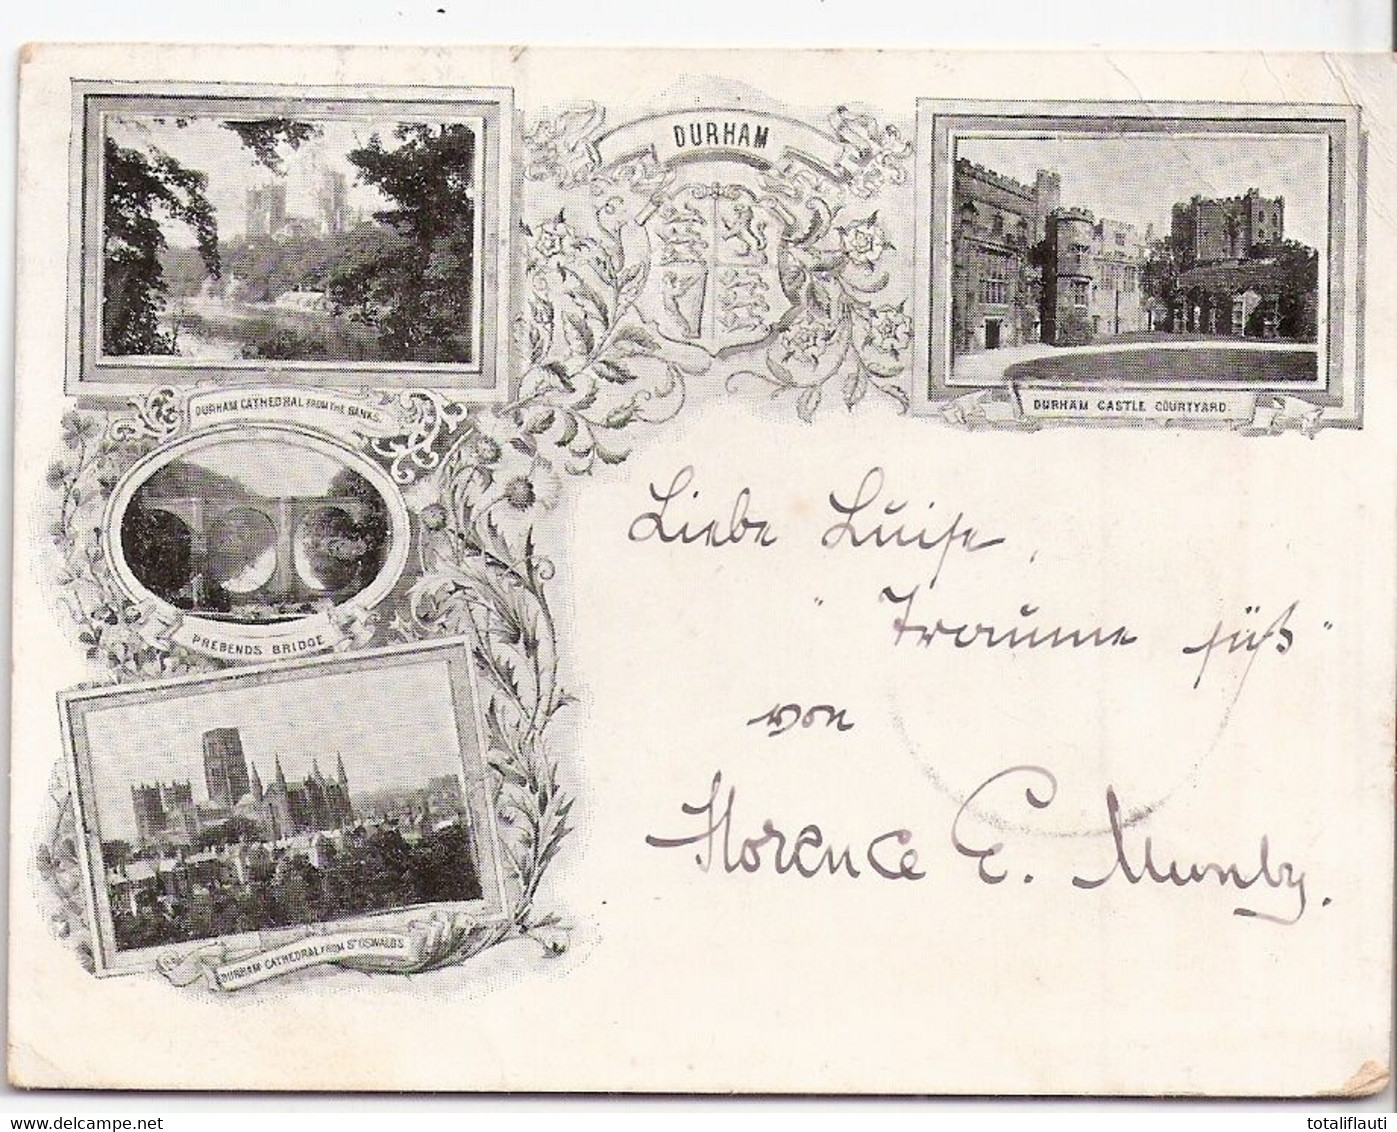 DURHAM
DURHAM CATHEDRAL FROM THE BANKS
DURHAM CASTLE COURTYARD.
PREBENDS BRIDGE
DURHAM CATHEDRAL FROM ST OSWALDS
Liebe Luise,
"Traume süß"
von
Florence E. Munby.
totaliflauti